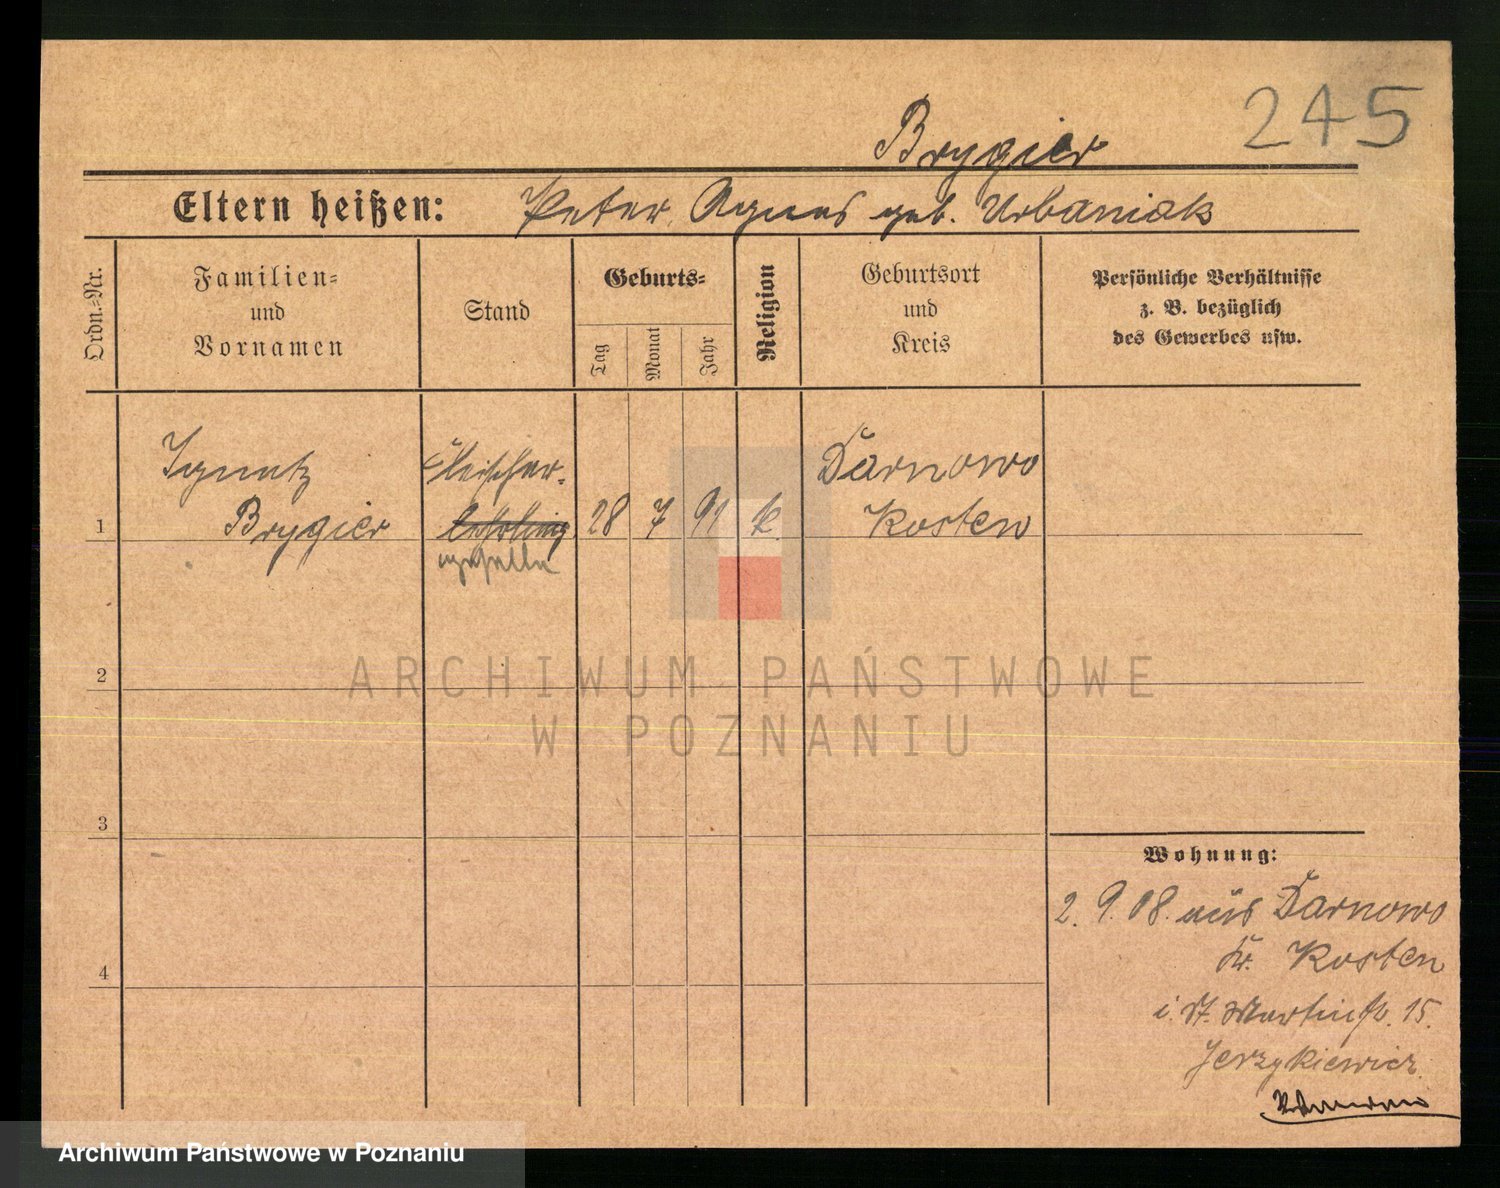 245
Brygier
Eltern heißen: Peter, Agnes geb. Urbaniak
Ordn.=Nr.
Familien=
und
Vornamen
Stand
Geburts=
Tag
Monat
Jahr
Religion
Geburtsort
und
Kreis
Persönliche Verhältnisse
z. B. bezüglich
des Gewerbes usw.
Ignatz Fleischer- Darnowo
1 Brygier lehrling 28 7 91 k. Kosten
geselle
2
ARCHIWUM PAŃSTWOWE
W POZNANIU
3
4
Wohnung:
2. 9. 08. aus Darnowo
Kr. Kosten
i. St. Martinstr. 15.
Jerzykiewicz.
Archiwum Państwowe w Poznaniu